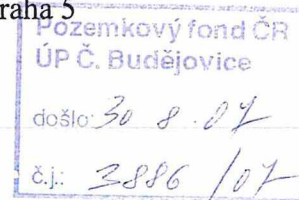 raha 5
Pozemkový fond ČR
ÚP Č. Budějovice
došlo: 30 8. 07
č.j.: 3886 /07